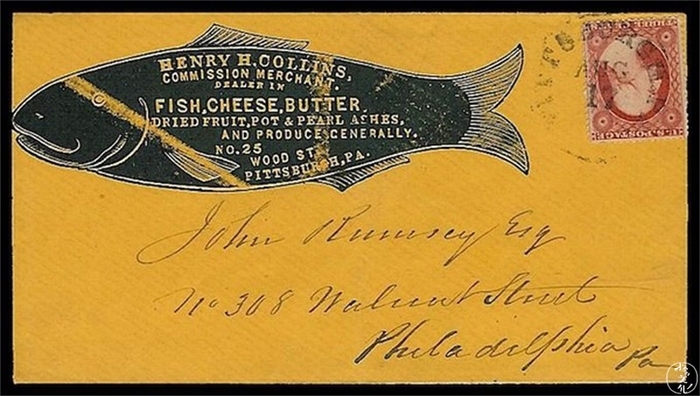 HENRY H. COLLINS,
COMMISSION MERCHANT.
DEALER IN
FISH, CHEESE, BUTTER,
DRIED FRUIT, POT & PEARL ASHES,
AND PRODUCE GENERALLY.
NO. 25
WOOD ST.
PITTSBURGH, PA.
AUG
17
U.S. POSTAGE
John Rumsey Esq
No 308 Walnut Street
Philadelphia
Pa